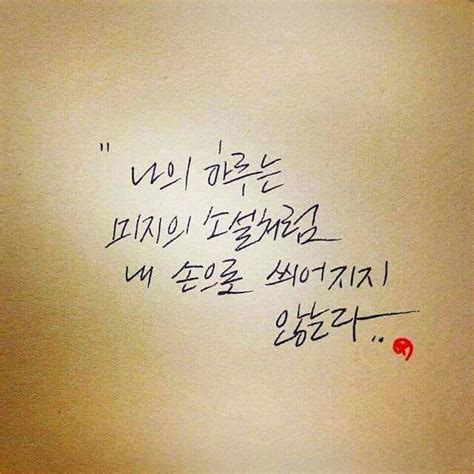 "나의 하루는
미지의 소설처럼
내 손으로 씌어지지
않는다..